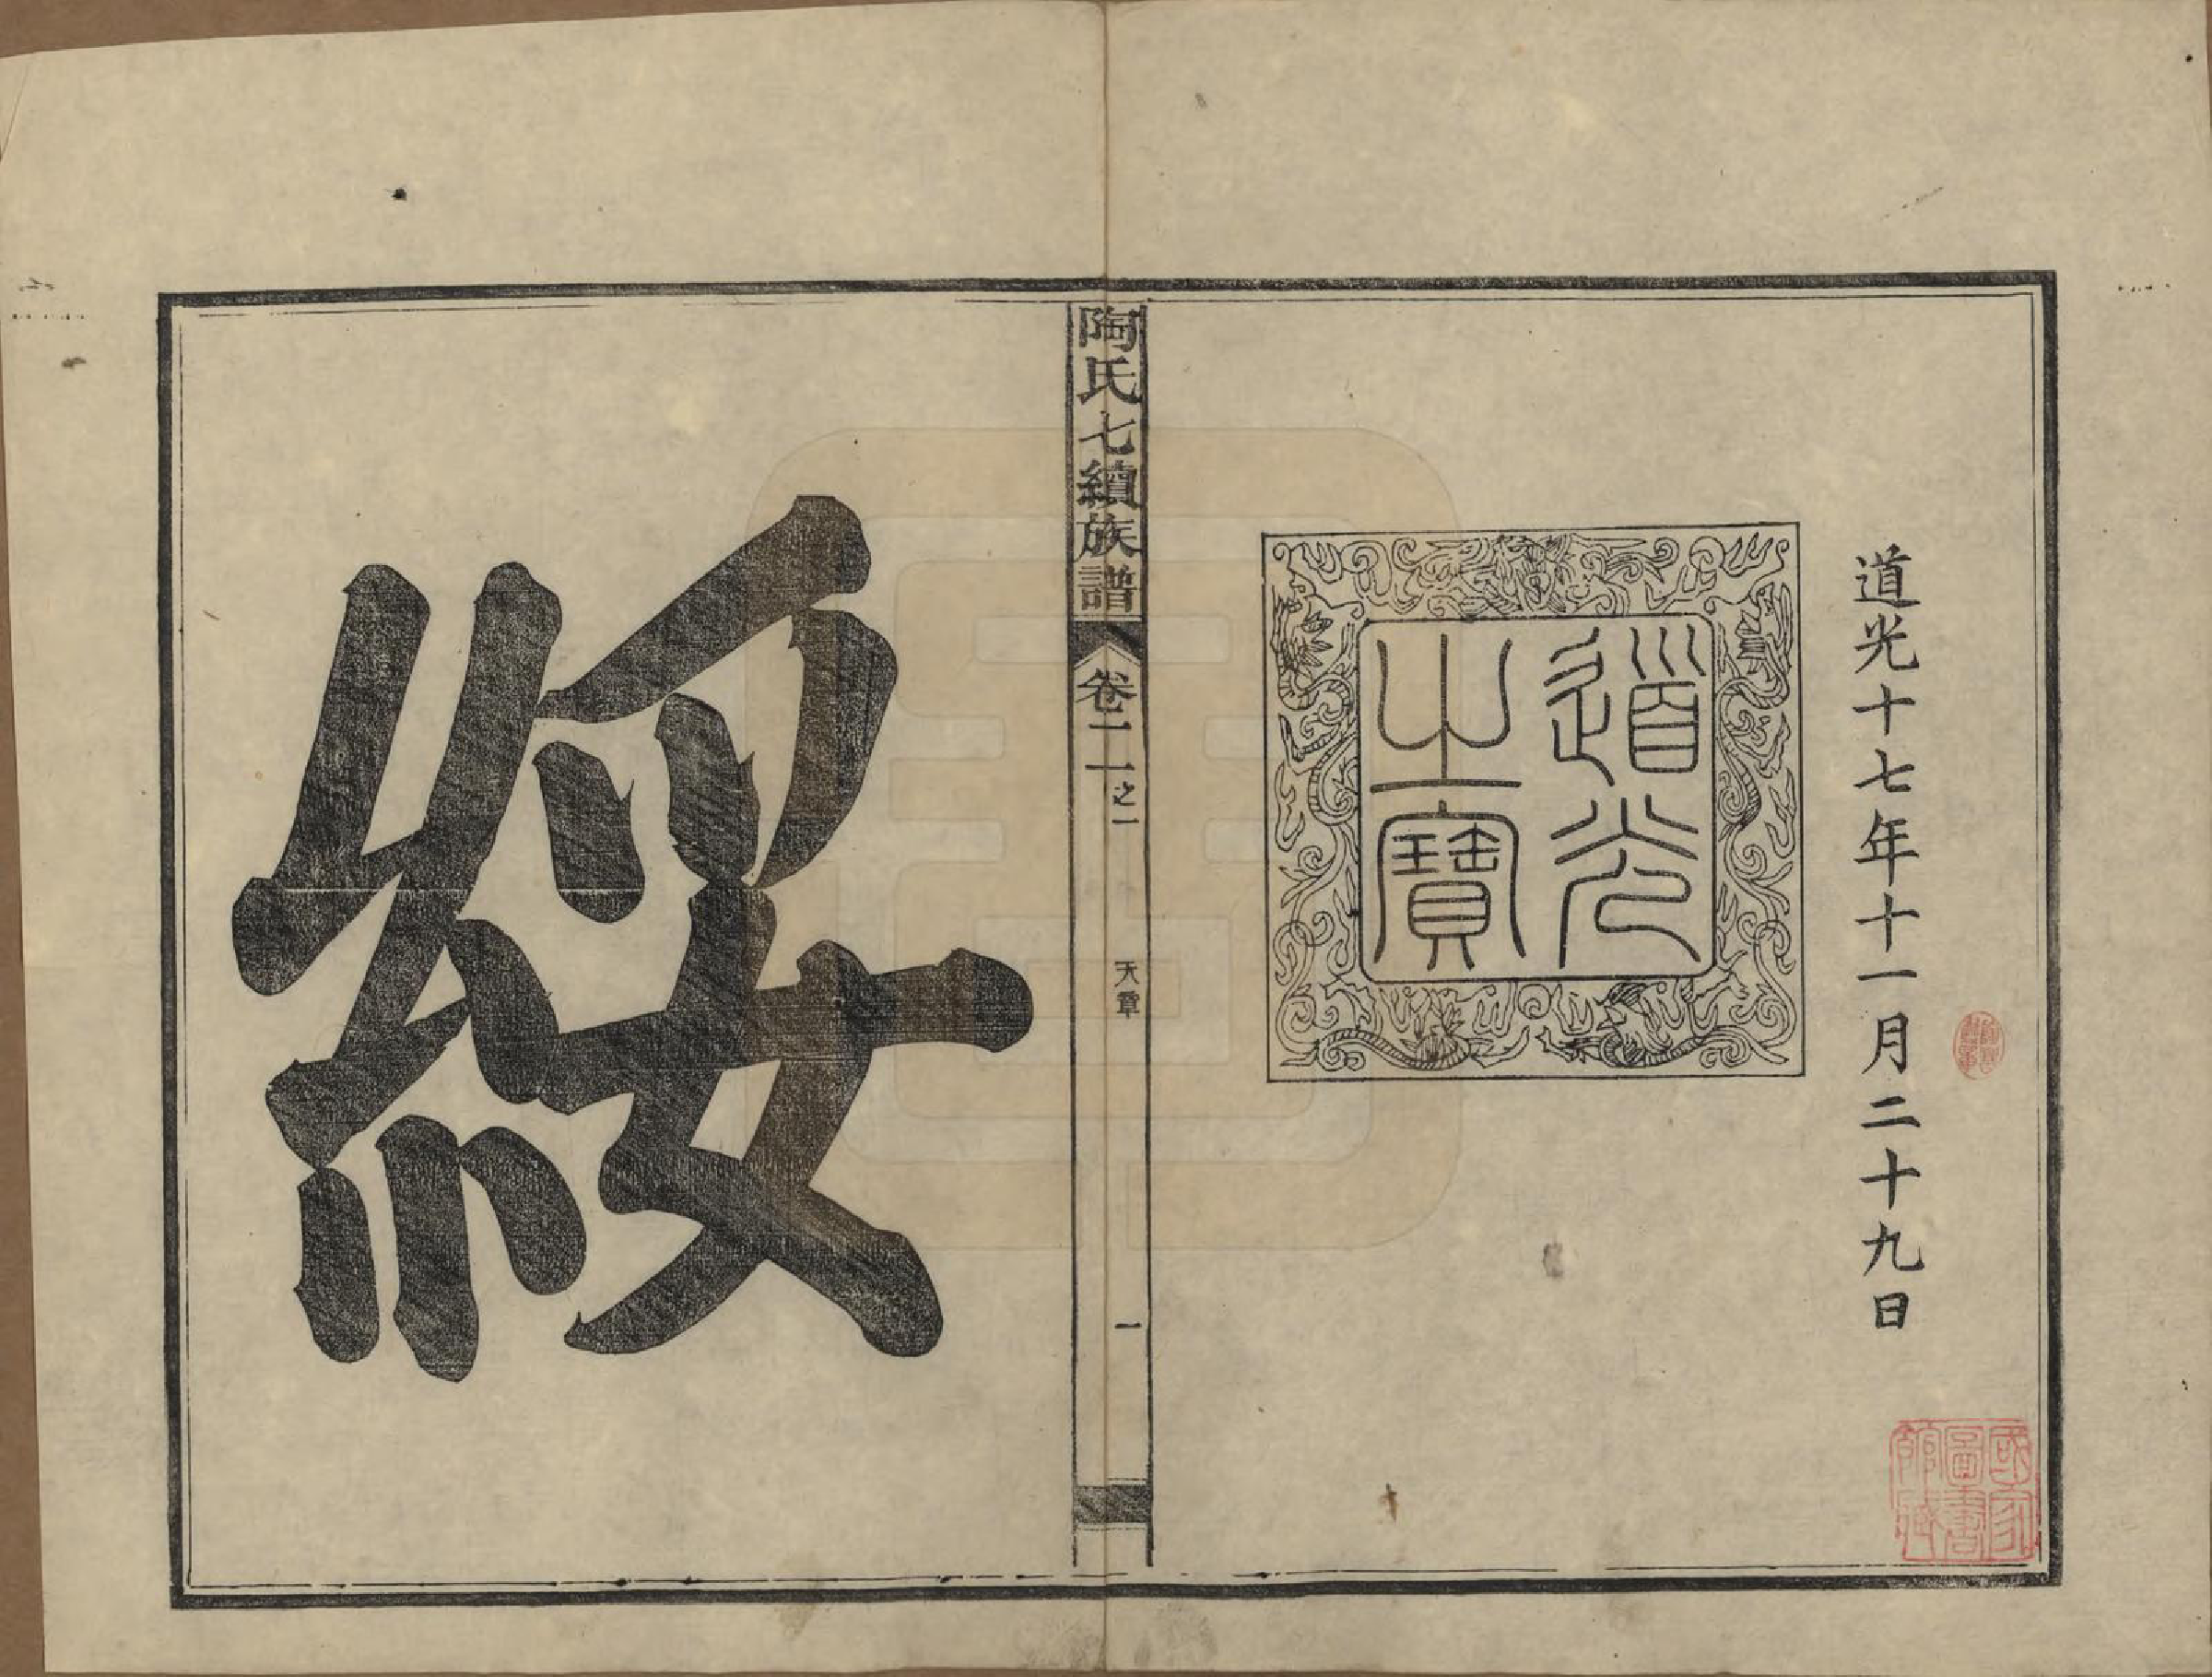 道光十七年十一月二十九日
道光
之寶
陶氏七續族譜
卷二之一
天章
一
綏
國家
圖書
館藏